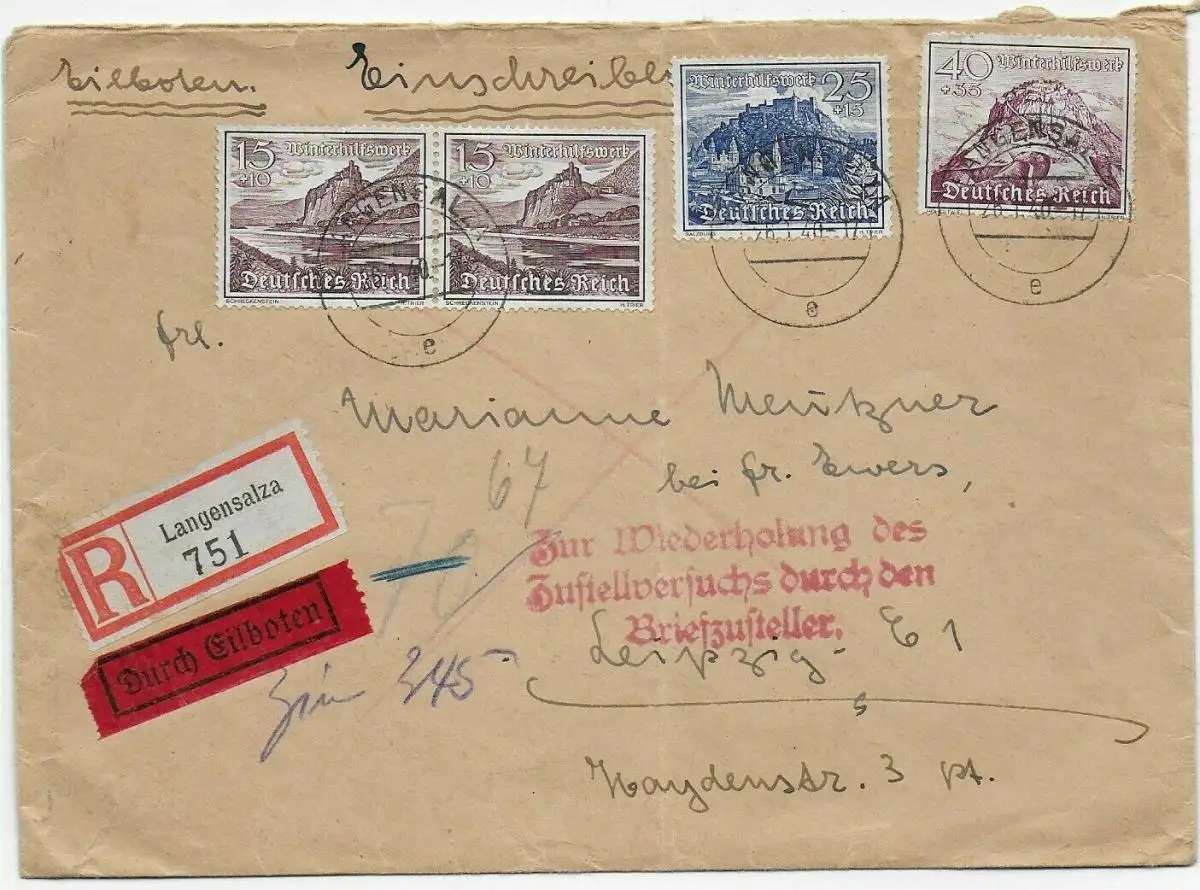 Eilboten. Einschreiben
15 +10 Winterhilfswerk
Deutsches Reich
SCHRECKENSTEIN H.TRIER
15 +10 Winterhilfswerk
Deutsches Reich
SCHRECKENSTEIN H.TRIER
Winterhilfswerk 25 +15
Deutsches Reich
SALZBURG H.TRIER
40 +35 Winterhilfswerk
Deutsches Reich
H.TRIER
LANGENSALZA
e
LANGENSALZA
26.1.40-12
e
LANGENSALZA
26.1.40-12
e
Frl.
Marianne Meutzner
bei Fr. Ewers,
67
70
R Langensalza
751
Durch Eilboten
Zur Wiederholung des
Zustellversuchs durch den
Briefzusteller.
Leipzig. C 1
345
s
Haydenstr. 3 pt.